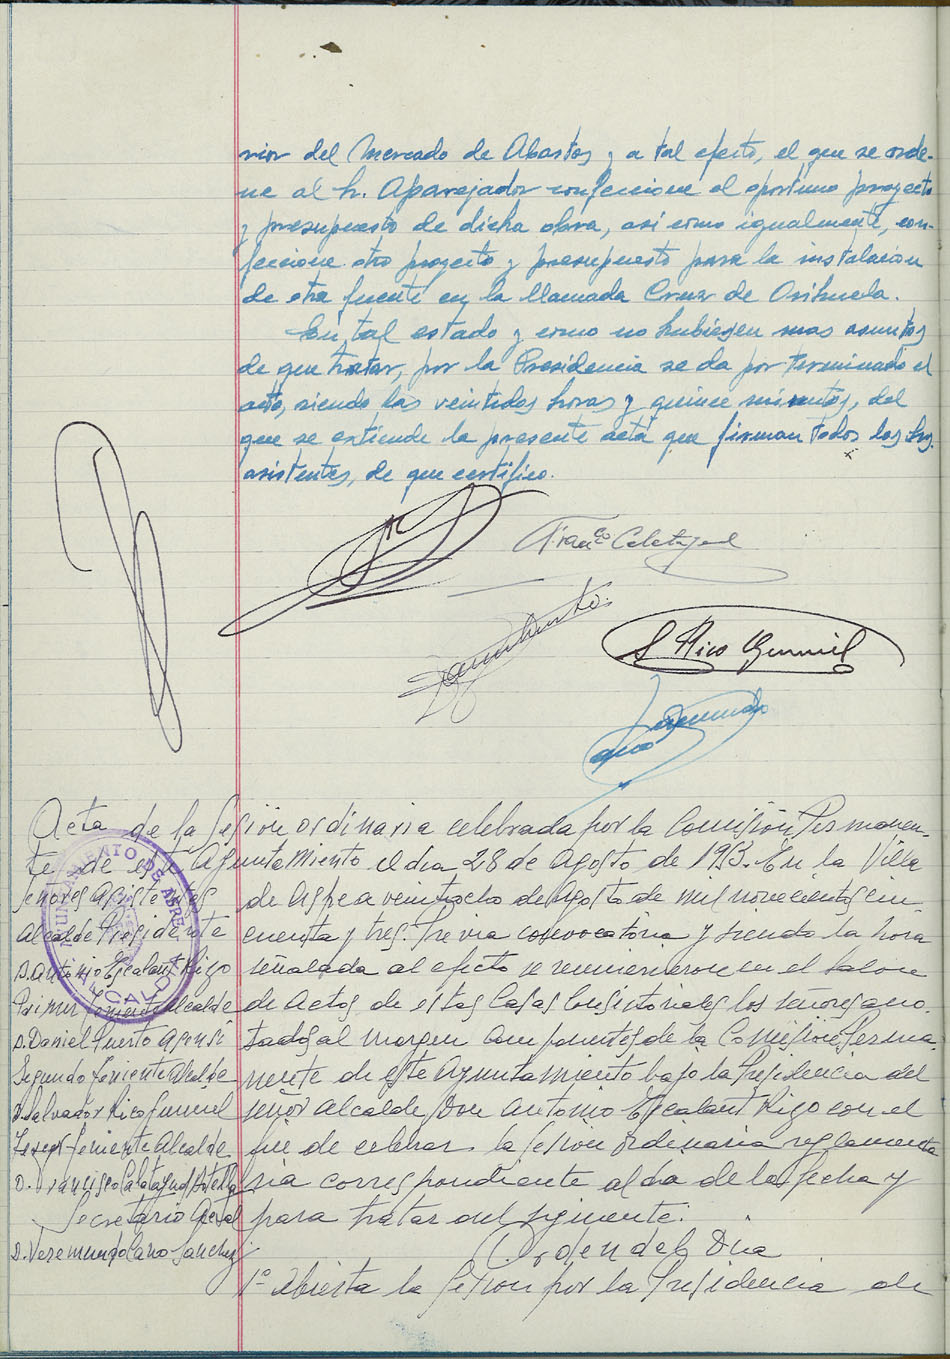 rior del Mercado de Abastos y a tal efecto, el que se orde-
ne al Sr. Aparejador confeccione el oportuno proyecto
y presupuesto de dicha obra, asi como igualmente, con-
feccione otro proyecto y presupuesto para la instalacion
de otra fuente en la llamada Cruz de Orihuela.
En tal estado y como no hubiesen mas asuntos
de que tratar, por la Presidencia se da por terminado el
acto, siendo las veintidos horas y quince minutos, del
que se extiende la presente acta que firman todos los Srs.
asistentes, de que certifico.
Franco Calatayud
Daniel Puerto
S Rico Gumiel
Veremundo
Cano
Acta de la Sesión ordinaria celebrada por la Comisión Permanen-
te de este Ayuntamiento el dia 28 de Agosto de 1953. En la Villa
AYUNTAMIENTO DE ASPE
ALCALDIA
Señores Asistentes
Alcalde Presidente
D. Antonio Escalant Rigo
Primer Teniente Alcalde
D. Daniel Puerto Asensi
Segundo Teniente Alcalde
D. Salvador Rico Gumiel
Tercer Teniente Alcalde
D. Francisco Calatayud
Secretario Gral
D. Veremundo Cano Sanchez
de Aspe a veintiocho de Agosto de mil novecientos cin-
cuenta y tres. Previa convocatoria y siendo la hora
señalada al efecto se reunieron en el salon
de actos de estas Casas Consistoriales los señores ano-
tados al margen componentes de la Comisión Perma-
nente de este Ayuntamiento bajo la Presidencia del
señor Alcalde Don Antonio Escalant Rigo con el
fin de celebrar la Sesion ordinaria reglamenta
ria correspondiente al dia de la fecha y
para tratar del siguiente.
Orden del Dia
1º Abierta la Sesion por la Presidencia de